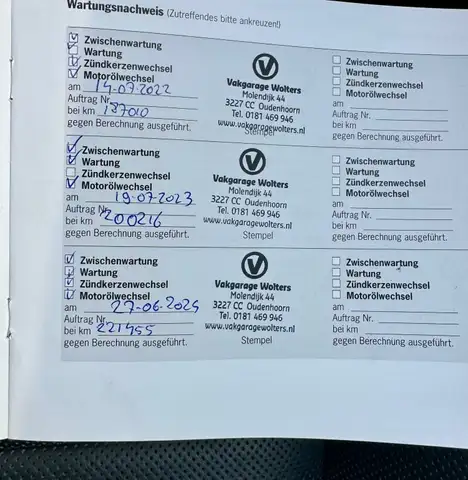 Wartungsnachweis (Zutreffendes bitte ankreuzen!)
Zwischenwartung
Wartung
Zündkerzenwechsel
Motorölwechsel
am 14-07-2022
Auftrag Nr.
bei km 187010
gegen Berechnung ausgeführt.
V
Vakgarage Wolters
Molendijk 44
3227 CC Oudenhoorn
Tel. 0181 469 946
www.vakgaragewolters.nl
Stempel
Zwischenwartung
Wartung
Zündkerzenwechsel
Motorölwechsel
am
Auftrag Nr.
bei km
gegen Berechnung ausgeführt.
Zwischenwartung
Wartung
Zündkerzenwechsel
Motorölwechsel
am 19-07-2023
Auftrag Nr.
bei km 200216
gegen Berechnung ausgeführt.
V
Vakgarage Wolters
Molendijk 44
3227 CC Oudenhoorn
Tel. 0181 469 946
www.vakgaragewolters.nl
Stempel
Zwischenwartung
Wartung
Zündkerzenwechsel
Motorölwechsel
am
Auftrag Nr.
bei km
gegen Berechnung ausgeführt.
Zwischenwartung
Wartung
Zündkerzenwechsel
Motorölwechsel
am
Auftrag Nr.
bei km 221455
gegen Berechnung ausgeführt.
V
Vakgarage Wolters
Molendijk 44
3227 CC Oudenhoorn
Tel. 0181 469 946
www.vakgaragewolters.nl
Stempel
Zwischenwartung
Wartung
Zündkerzenwechsel
Motorölwechsel
am
Auftrag Nr.
bei km
gegen Berechnung ausgeführt.